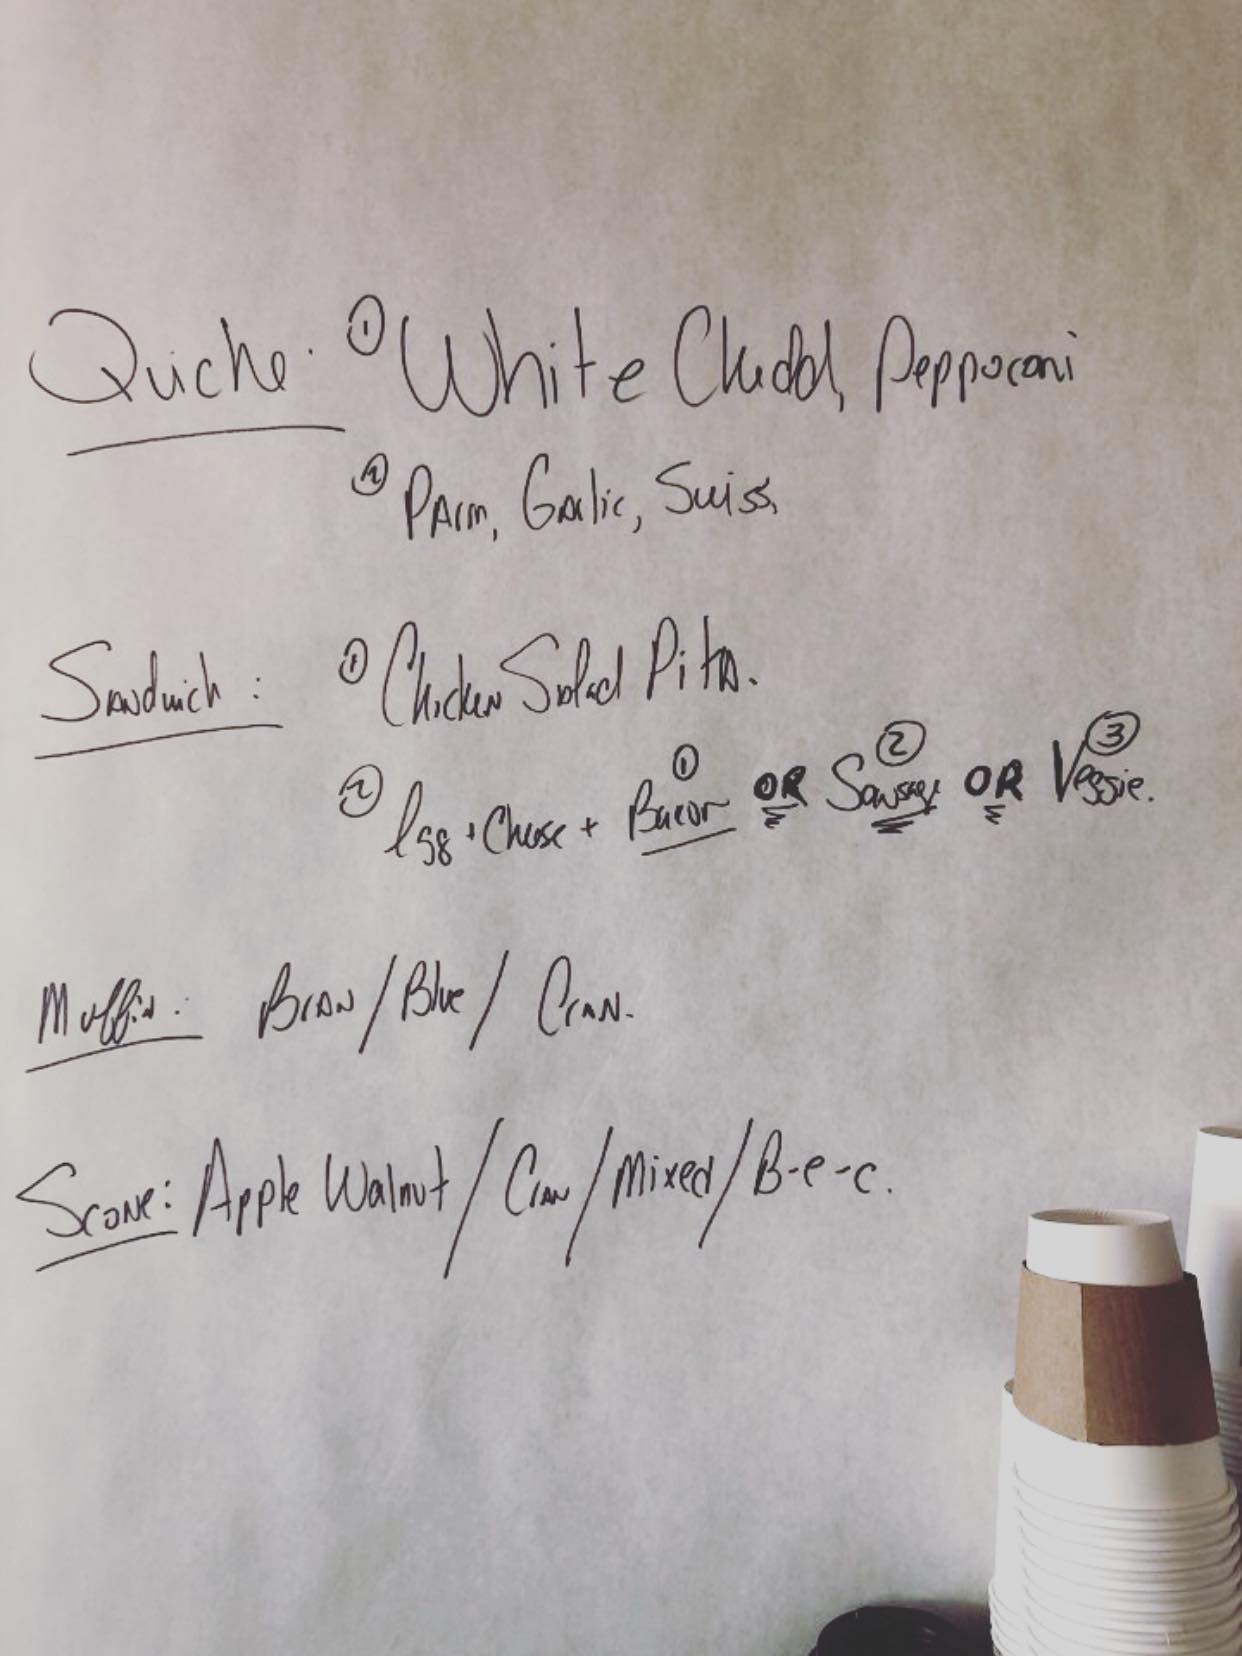 Quiche: ① White Chedd, Pepporoni
② Parm, Garlic, Swiss,
Sandwich: ① Chicken Salad Pita.
② Egg + Cheese + ① Bacon OR ② Sausage OR ③ Veggie.
Muffin: Bran / Blue / Cran.
Scone: Apple Walnut / Cran / Mixed / B-e-c.